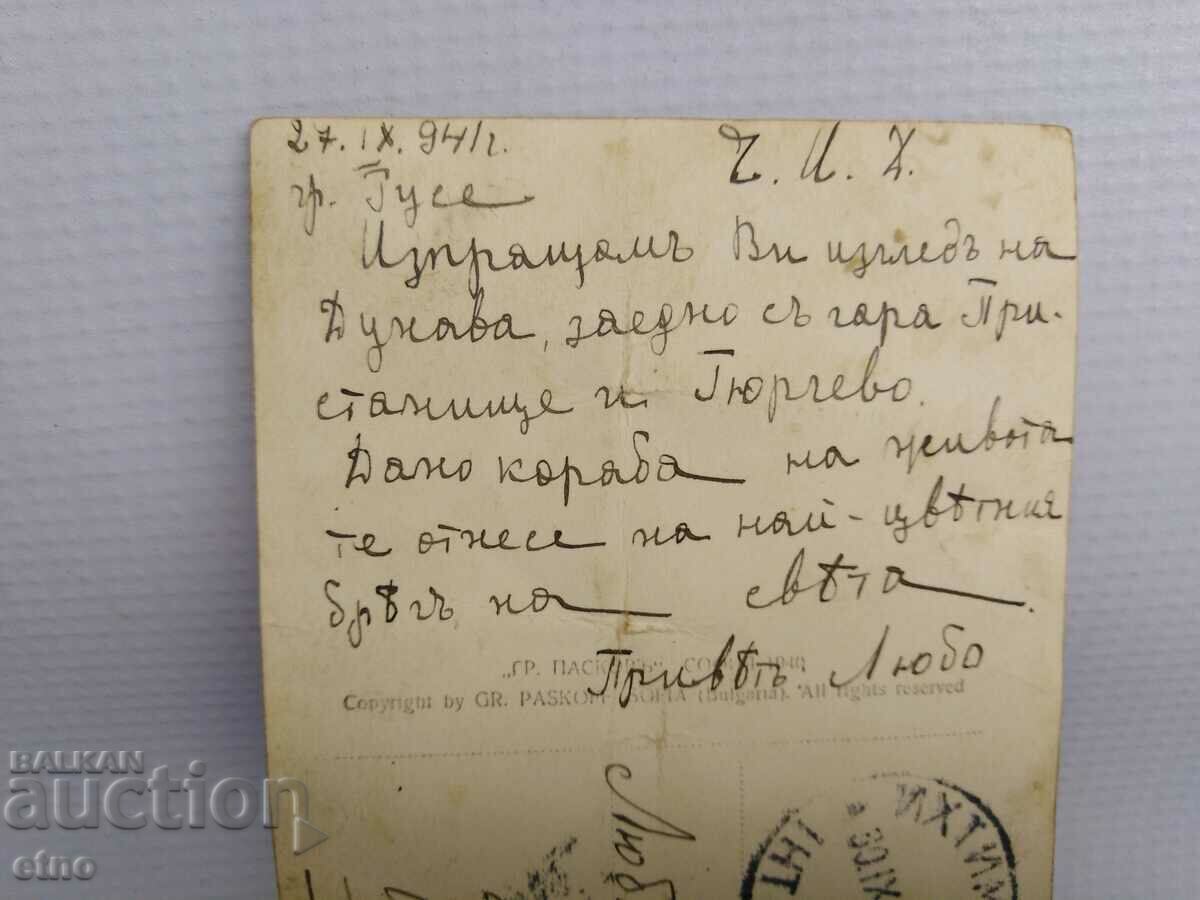 27. IX. 941 г.
Ч. И. Д.
гр. Русе
Изпращамъ Ви изгледъ на
Дунава, заедно съ гара При-
станище и Гюргево.
Дано кораба на живота
те отнесе на най-цвѣтния
брѣгъ на свѣта.
Привѣтъ Любо
„ГР. ПАСКОВЪ“ СОФИЯ 1940
Copyright by GR. PASKOFF SOFIA (Bulgaria). All rights reserved
ИХТИМ
30.IX
BALKAN
auction
etno